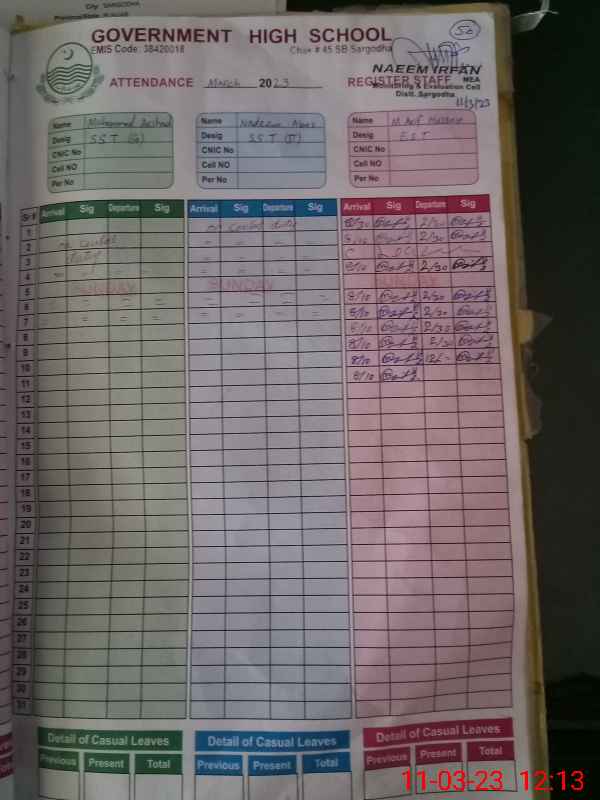 City: SARGODHA
GOVERNMENT HIGH SCHOOL
50
EMIS Code: 38420018
Chak # 45 SB Sargodha
NAEEM IRFAN
MEA
Monitoring & Evaluation Cell
Distt. Sargodha
11/3/23
ATTENDANCE March 2023 REGISTER STAFF
Name Muhammad Arshad
Desig SST (G)
CNIC No
Cell NO
Per No
Name Nadeem Abbas
Desig SST (IT)
CNIC No
Cell NO
Per No
Name M Arif Hussain
Desig EST
CNIC No
Cell NO
Per No
Sr # Arrival Sig Departure Sig Arrival Sig Departure Sig Arrival Sig Departure Sig
1 8/30 2/30
2 on census on census duty 8/10 2/30
3 duty
4 8/10 2/30
5 SUNDAY SUNDAY SUNDAY
6 8/10 2/30
7 8/10 2/30
8 8/10 2/30
9 8/10 2/30
10 8/10 12/-
11 8/10
12
13
14
15
16
17
18
19
20
21
22
23
24
25
26
27
28
29
30
31
Detail of Casual Leaves Detail of Casual Leaves Detail of Casual Leaves
Previous Present Total Previous Present Total Previous Present Total
11-03-23 12:13